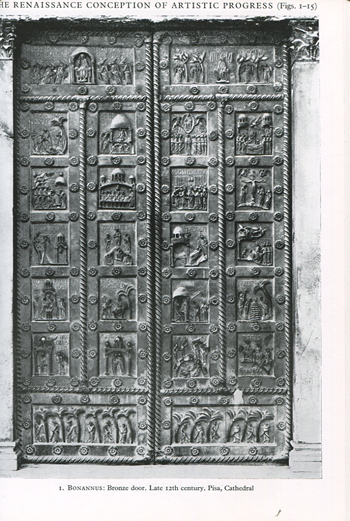 HE RENAISSANCE CONCEPTION OF ARTISTIC PROGRESS (Figs. 1-15)
1. BONANNUS: Bronze door. Late 12th century. Pisa, Cathedral